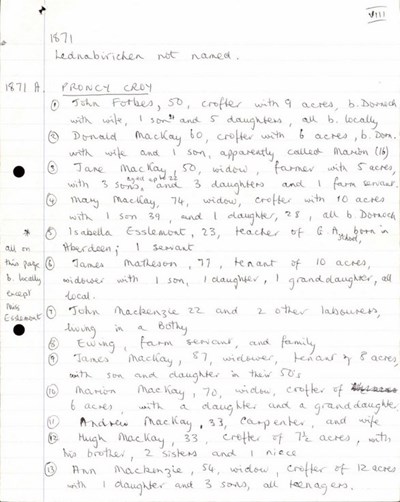 VIII
1871
Lednabirichen not named.
1871 A. PRONCY CROY
① John Forbes, 50, crofter with 9 acres, b. Dornoch
with wife, 1 son and 5 daughters, all b. locally
② Donald MacKay 60, crofter with 6 acres, b. Dorn.
with wife and 1 son, apparently called Marion (16)
③ Jane MacKay, 50, widow, farmer with 5 acres,
with 3 sons, aged up to 26 and 3 daughters and 1 farm servant.
④ Mary MacKay, 74, widow, crofter with 10 acres
with 1 son 39, and 1 daughter, 28, all b. Dornoch
⑤ Isabella Esslemont, 23, teacher of G.A. School, born in
Aberdeen; 1 servant
* all on
this page
b. locally
except
Miss
Esslemont
⑥ James Matheson, 77, tenant of 10 acres,
widower with 1 son, 1 daughter, 1 granddaughter, all
local.
⑦ John Mackenzie 22 and 2 other labourers,
living in a Bothy
⑧ Ewing, farm servant, and family
⑨ James MacKay, 87, widower, tenant of 8 acres,
with son and daughter in their 50's
⑩ Marion MacKay, 70, widow, crofter of
6 acres, with a daughter and a granddaughter,
⑪ Andrew MacKay, 33, carpenter, and wife
⑫ Hugh MacKay, 33, crofter of 7½ acres, with
his brother, 2 sisters and 1 niece
⑬ Ann Mackenzie, 54, widow, crofter of 12 acres
with 1 daughter and 3 sons, all teenagers.